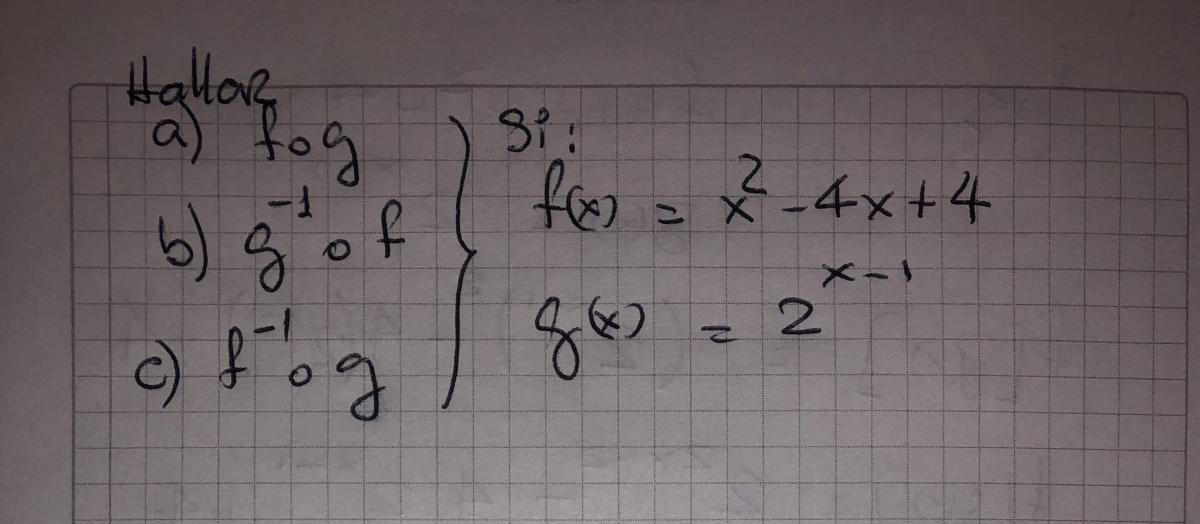 Hallar
a) fog
b) g⁻¹ o f
c) f⁻¹ o g
Si:
f(x) = x² - 4x + 4
g(x) = 2ˣ⁻¹